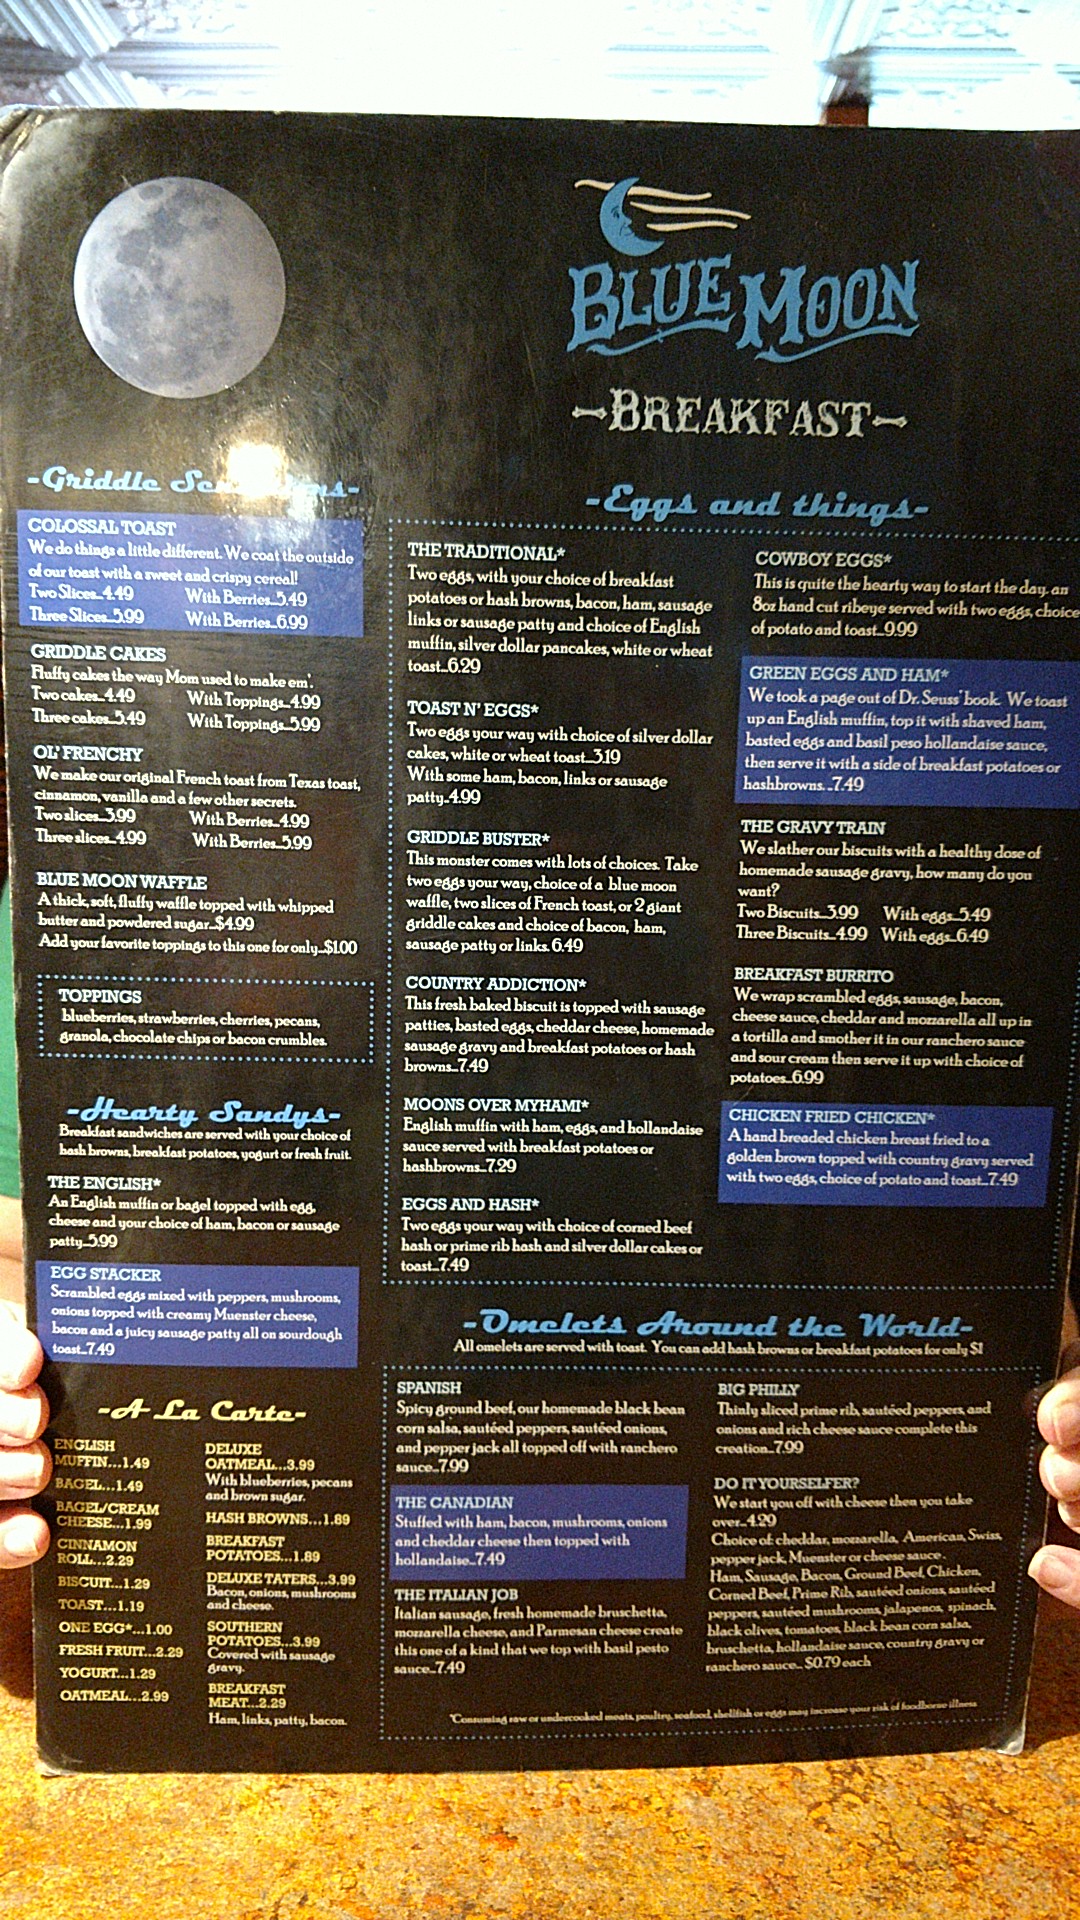 BLUE MOON
-BREAKFAST-
-Griddle
COLOSSAL TOAST
We do things a little different. We coat the outside
of our toast with a sweet and crispy cereal!
Two Slices...4.49 With Berries...5.49
Three Slices...5.99 With Berries...6.99
GRIDDLE CAKES
Fluffy cakes the way Mom used to make em'.
Two cakes...4.49 With Toppings...4.99
Three cakes...5.49 With Toppings...5.99
OL' FRENCHY
We make our original French toast from Texas toast,
cinnamon, vanilla and a few other secrets.
Two slices...3.99 With Berries...4.99
Three slices...4.99 With Berries...5.99
BLUE MOON WAFFLE
A thick, soft, fluffy waffle topped with whipped
butter and powdered sugar...$4.99
Add your favorite toppings to this one for only...$1.00
TOPPINGS
blueberries, strawberries, cherries, pecans,
granola, chocolate chips or bacon crumbles.
-Hearty Sandys-
Breakfast sandwiches are served with your choice of
hash browns, breakfast potatoes, yogurt or fresh fruit.
THE ENGLISH*
An English muffin or bagel topped with egg,
cheese and your choice of ham, bacon or sausage
patty...5.99
EGG STACKER
Scrambled eggs mixed with peppers, mushrooms,
onions topped with creamy Muenster cheese,
bacon and a juicy sausage patty all on sourdough
toast...7.49
-A La Carte-
ENGLISH
MUFFIN...1.49
BAGEL...1.49
BAGEL/CREAM
CHEESE...1.99
CINNAMON
ROLL...2.29
BISCUIT...1.29
TOAST...1.19
ONE EGG*...1.00
FRESH FRUIT...2.29
YOGURT...1.29
OATMEAL...2.99
DELUXE
OATMEAL...3.99
With blueberries, pecans
and brown sugar.
HASH BROWNS...1.89
BREAKFAST
POTATOES...1.89
DELUXE TATERS...3.99
Bacon, onions, mushrooms
and cheese.
SOUTHERN
POTATOES...3.99
Covered with sausage
gravy.
BREAKFAST
MEAT...2.29
Ham, links, patty, bacon.
-Eggs and things-
THE TRADITIONAL*
Two eggs, with your choice of breakfast
potatoes or hash browns, bacon, ham, sausage
links or sausage patty and choice of English
muffin, silver dollar pancakes, white or wheat
toast...6.29
TOAST N' EGGS*
Two eggs your way with choice of silver dollar
cakes, white or wheat toast...3.19
With some ham, bacon, links or sausage
patty..4.99
GRIDDLE BUSTER*
This monster comes with lots of choices. Take
two eggs your way, choice of a blue moon
waffle, two slices of French toast, or 2 giant
griddle cakes and choice of bacon, ham,
sausage patty or links. 6.49
COUNTRY ADDICTION*
This fresh baked biscuit is topped with sausage
patties, basted eggs, cheddar cheese, homemade
sausage gravy and breakfast potatoes or hash
browns...7.49
MOONS OVER MYHAMI*
English muffin with ham, eggs, and hollandaise
sauce served with breakfast potatoes or
hashbrowns...7.29
EGGS AND HASH*
Two eggs your way with choice of corned beef
hash or prime rib hash and silver dollar cakes or
toast...7.49
COWBOY EGGS*
This is quite the hearty way to start the day. an
8oz hand cut ribeye served with two eggs, choice
of potato and toast...9.99
GREEN EGGS AND HAM*
We took a page out of Dr. Seuss' book. We toast
up an English muffin, top it with shaved ham,
basted eggs and basil peso hollandaise sauce,
then serve it with a side of breakfast potatoes or
hashbrowns. ..7.49
THE GRAVY TRAIN
We slather our biscuits with a healthy dose of
homemade sausage gravy, how many do you
want?
Two Biscuits...3.99 With eggs...5.49
Three Biscuits...4.99 With eggs...6.49
BREAKFAST BURRITO
We wrap scrambled eggs, sausage, bacon,
cheese sauce, cheddar and mozzarella all up in
a tortilla and smother it in our ranchero sauce
and sour cream then serve it up with choice of
potatoes...6.99
CHICKEN FRIED CHICKEN*
A hand breaded chicken breast fried to a
golden brown topped with country gravy served
with two eggs, choice of potato and toast...7.49
-Omelets Around the World-
All omelets are served with toast. You can add hash browns or breakfast potatoes for only $1
SPANISH
Spicy ground beef, our homemade black bean
corn salsa, sautéed peppers, sautéed onions,
and pepper jack all topped off with ranchero
sauce...7.99
THE CANADIAN
Stuffed with ham, bacon, mushrooms, onions
and cheddar cheese then topped with
hollandaise...7.49
THE ITALIAN JOB
Italian sausage, fresh homemade bruschetta,
mozzarella cheese, and Parmesan cheese create
this one of a kind that we top with basil pesto
sauce...7.49
BIG PHILLY
Thinly sliced prime rib, sautéed peppers, and
onions and rich cheese sauce complete this
creation...7.99
DO IT YOURSELFER?
We start you off with cheese then you take
over...4.29
Choice of cheddar, mozzarella, American, Swiss,
pepper jack, Muenster or cheese sauce.
Ham, Sausage, Bacon, Ground Beef, Chicken,
Corned Beef, Prime Rib, sautéed onions, sautéed
peppers, sautéed mushrooms, jalapenos, spinach,
black olives, tomatoes, black bean corn salsa,
bruschetta, hollandaise sauce, country gravy or
ranchero sauce... $0.79 each
*Consuming raw or undercooked meats, poultry, seafood, shellfish or eggs may increase your risk of foodborne illness